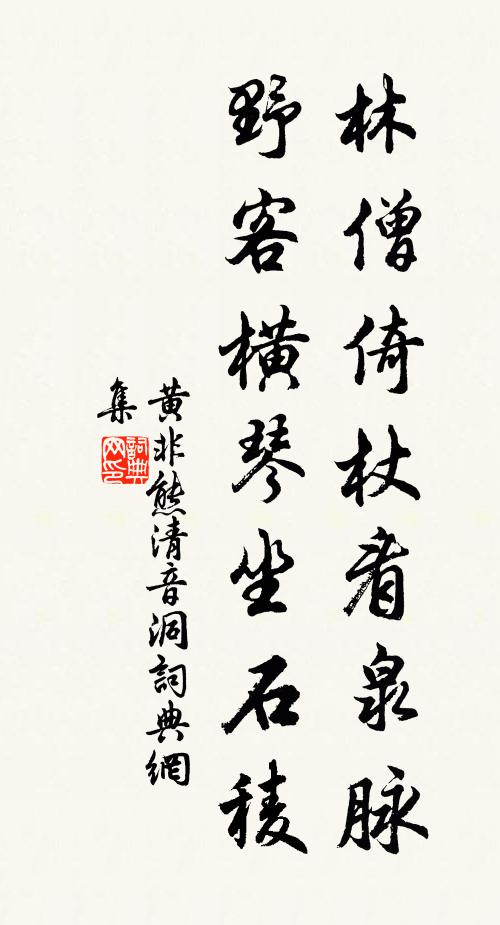 林僧倚杖看泉脉
野客橫琴坐石稜
黄非熊清音洞詞典網
集
詞典網印